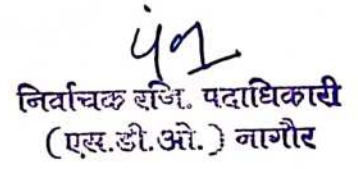 निर्वाचक रजि. पदाधिकारी
(एस.डी.ओ.) नागौर